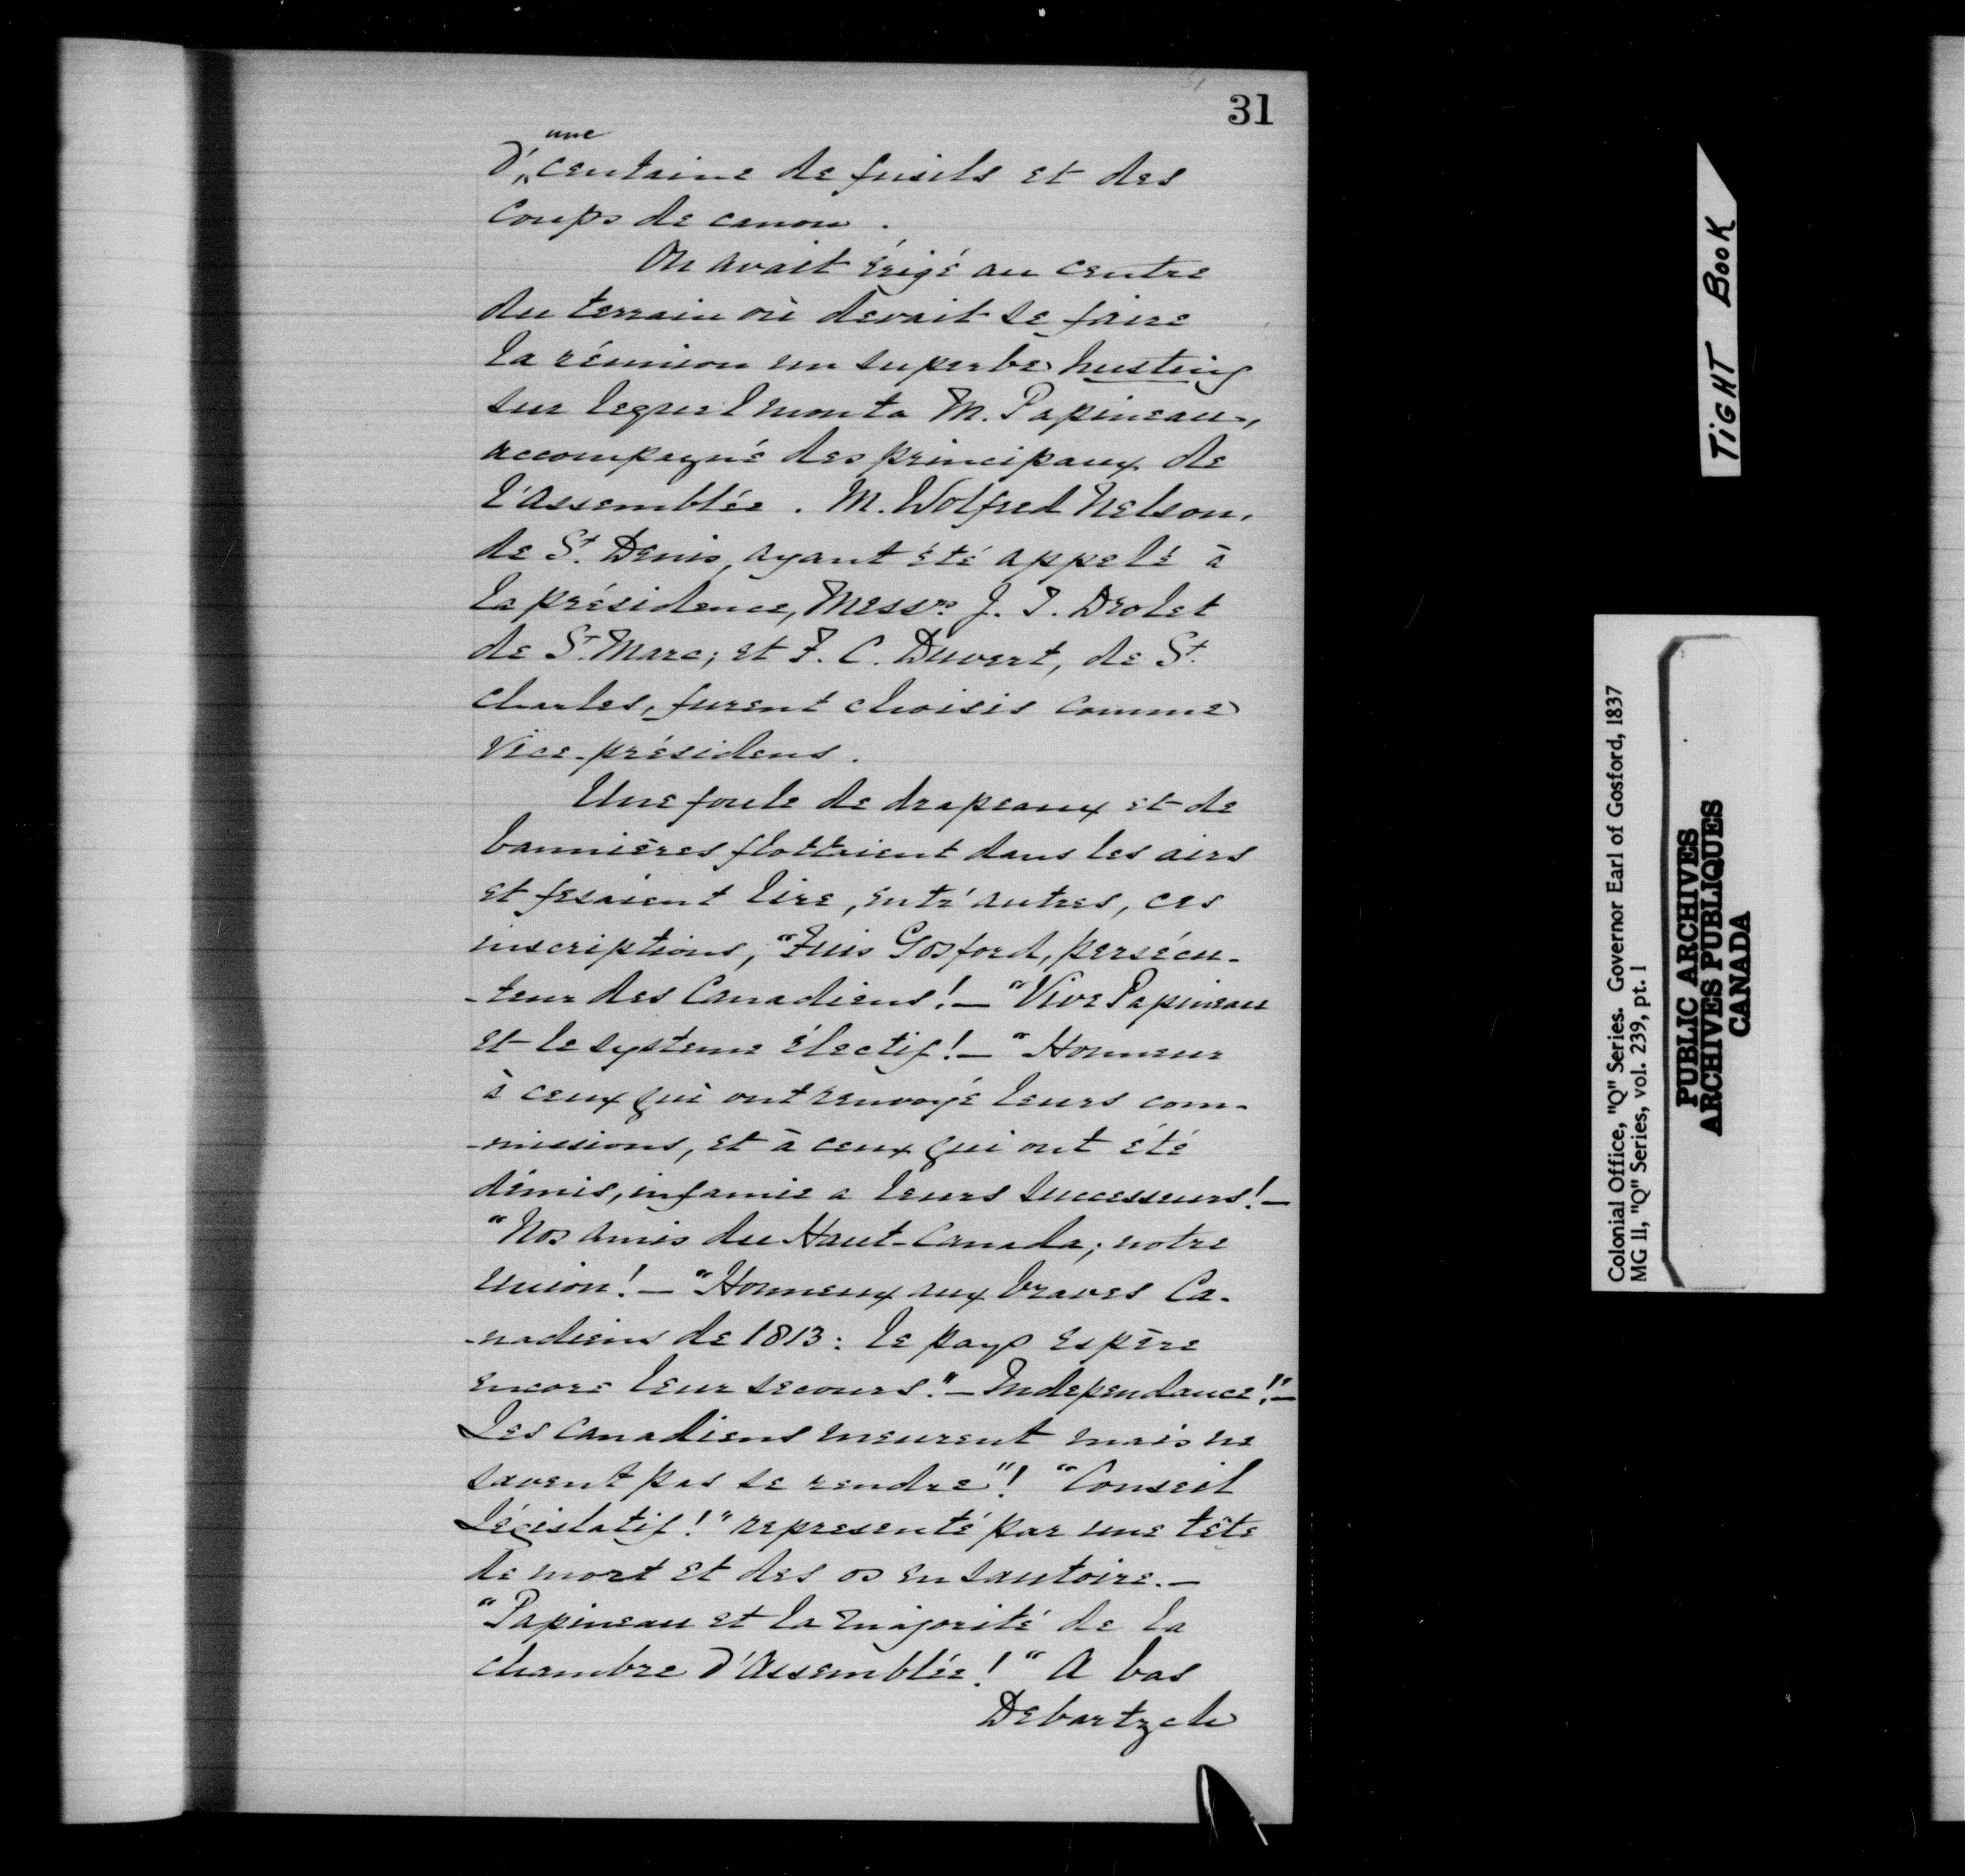 31
d'une centaine de fusils et des
coups de canon.
On avait érigé au centre
du terrain où devait se faire
la réunion un superbe husting
sur lequel monta M. Papineau,
accompagné des principaux de
l'assemblée. M. Wolfred Nelson,
de St. Denis, ayant été appelé à
la présidence, Messrs. J. T. Drolet
de St. Marc; et F. C. Duvert, de St.
Charles, furent choisis comme
Vice-présidens.
Une foule de drapeaux et de
bannières flottaient dans les airs
et fesaient lire, entr'autres, ces
inscriptions, "Fuis Gosford, persécu-
-teur des Canadiens! — "Vive Papineau
et le systeme électif! — "Honneur
à ceux qui ont renvoyé leurs com-
-missions, et à ceux qui ont été
démis, infamie a leurs successeurs! —
"Nos amis du Haut-Canada; notre
union! — "Honneux aux braves Ca-
-nadiens de 1813: le pays espère
encore leur secours." — Independance!" —
Les Canadiens meurent mais ne
savent pas se rendre"! "Conseil
Législatif!" representé par une tête
de mort et des os en sautoire. —
"Papineau et la majorité de la
chambre d'Assemblée! "A bas
Debartzch
TiGHT BOOK
Colonial Office, "Q" Series. Governor Earl of Gosford, 1837
MG 11, "Q" Series, vol. 239, pt. 1
PUBLIC ARCHIVES
ARCHIVES PUBLIQUES
CANADA